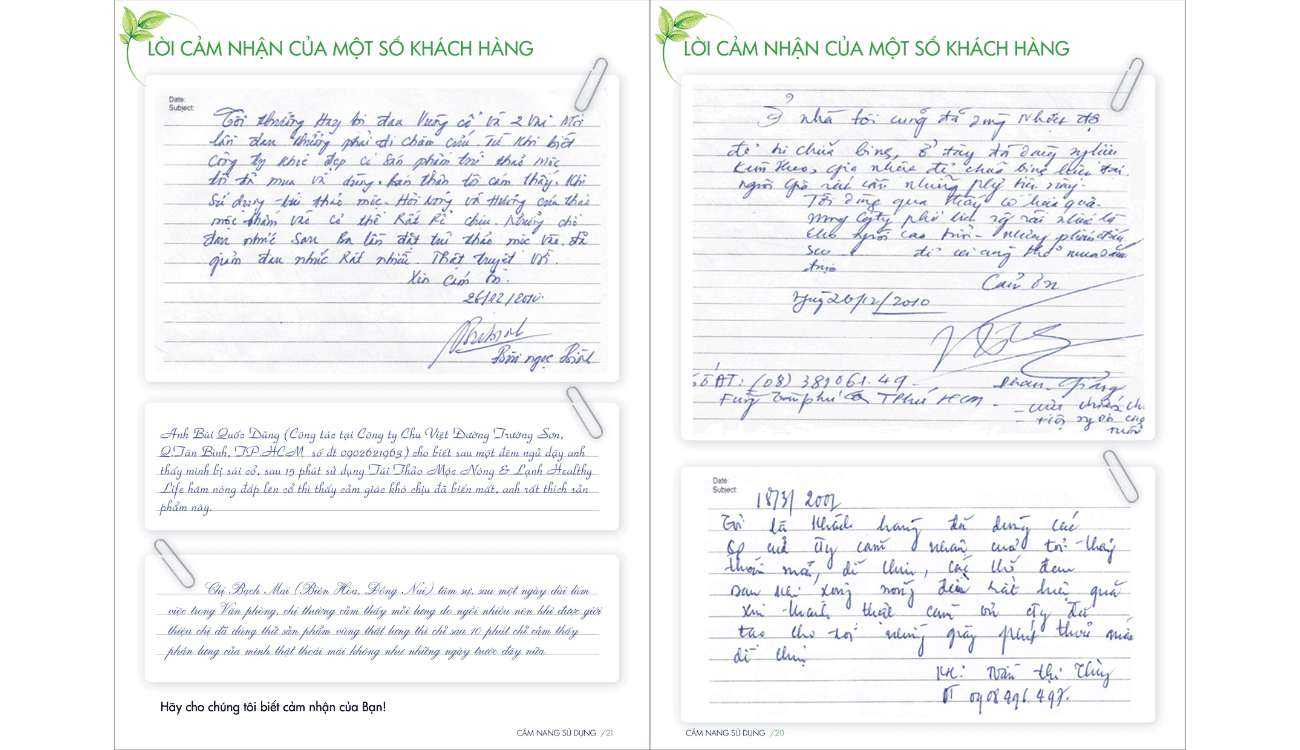 LỜI CẢM NHẬN CỦA MỘT SỐ KHÁCH HÀNG
Date:
Subject:
Tôi thường Hay bị đau Vương cổ và 2 Vai Mỗi
lần đau thường phải đi châm cứu. Từ Khi biết
Công ty Khoẻ đẹp có Sản phẩm túi thảo mộc
tôi đã mua và dùng. bản thân tôi cảm thấy. Khi
Sử dụng túi thảo mộc. Hơi nóng và Hương của thảo
mộc thấm vào cơ thể Rất Rễ chịu. Những chỗ
đau nhức Sau Ba lần đặt túi thảo mộc vào. đã
giảm đau nhức Rất nhiều. Thật tuyệt vời.
Xin Cám ơn.
26/12/2010.
Bùi ngọc Bình
Anh Bùi Quốc Dũng (Công tác tại Công ty Chu Việt Đường Trường Sơn,
Q.Tân Bình, TP.HCM số đt 0902621963) cho biết sau một đêm ngủ dậy anh
thấy mình bị sái cổ, sau 15 phút sử dụng Túi Thảo Mộc Nóng & Lạnh Healthy
Life hâm nóng đắp lên cổ thì thấy cảm giác khó chịu đã biến mất, anh rất thích sản
phẩm này.
Chị Bạch Mai (Biên Hòa, Đồng Nai) tâm sự, sau một ngày dài làm
việc trong Văn phòng, chị thường cảm thấy mỏi lưng do ngồi nhiều nên khi được giới
thiệu chị đã dùng thử sản phẩm vùng thắt lưng thì chỉ sau 10 phút chị cảm thấy
phần lưng của mình thật thoải mái không như những ngày trước đây nữa.
Hãy cho chúng tôi biết cảm nhận của Bạn!
CẨM NANG SỬ DỤNG /21
LỜI CẢM NHẬN CỦA MỘT SỐ KHÁCH HÀNG
Ở nhà tôi cũng đã dùng nhiệt độ
để trị chữa bệnh, ở đây đã dùng
người già rất cần những
Tôi dùng qua thấy có hiệu quả.
mong Cty phổ biến rộng rãi nhất là
cho người cao tuổi -
để ai cũng có thể mua
được
Cảm ơn
Ngày 26/12/2010
Số ĐT: (08) 381061.49 -
Date:
Subject:
18/3/2007
Tôi là khách hàng đã dùng các
sp của Cty cảm nhận của tôi thấy
thoải mái, dễ chịu,
sau khi xông nóng hiệu quả
xin thành thật cảm ơn Cty đã
tạo cho tôi những giây phút thoải mái
dễ chịu
KH: Trần thị Thùy
ĐT 0908.496.497.
CẨM NANG SỬ DỤNG /20